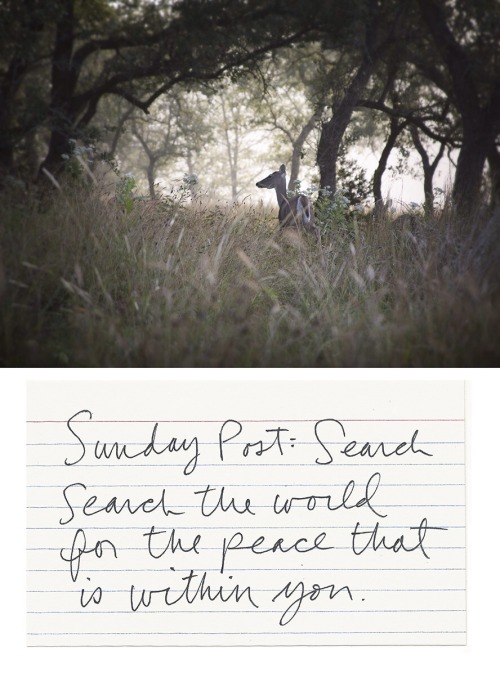 Sunday Post: Search
Search the world
for the peace that
is within you.